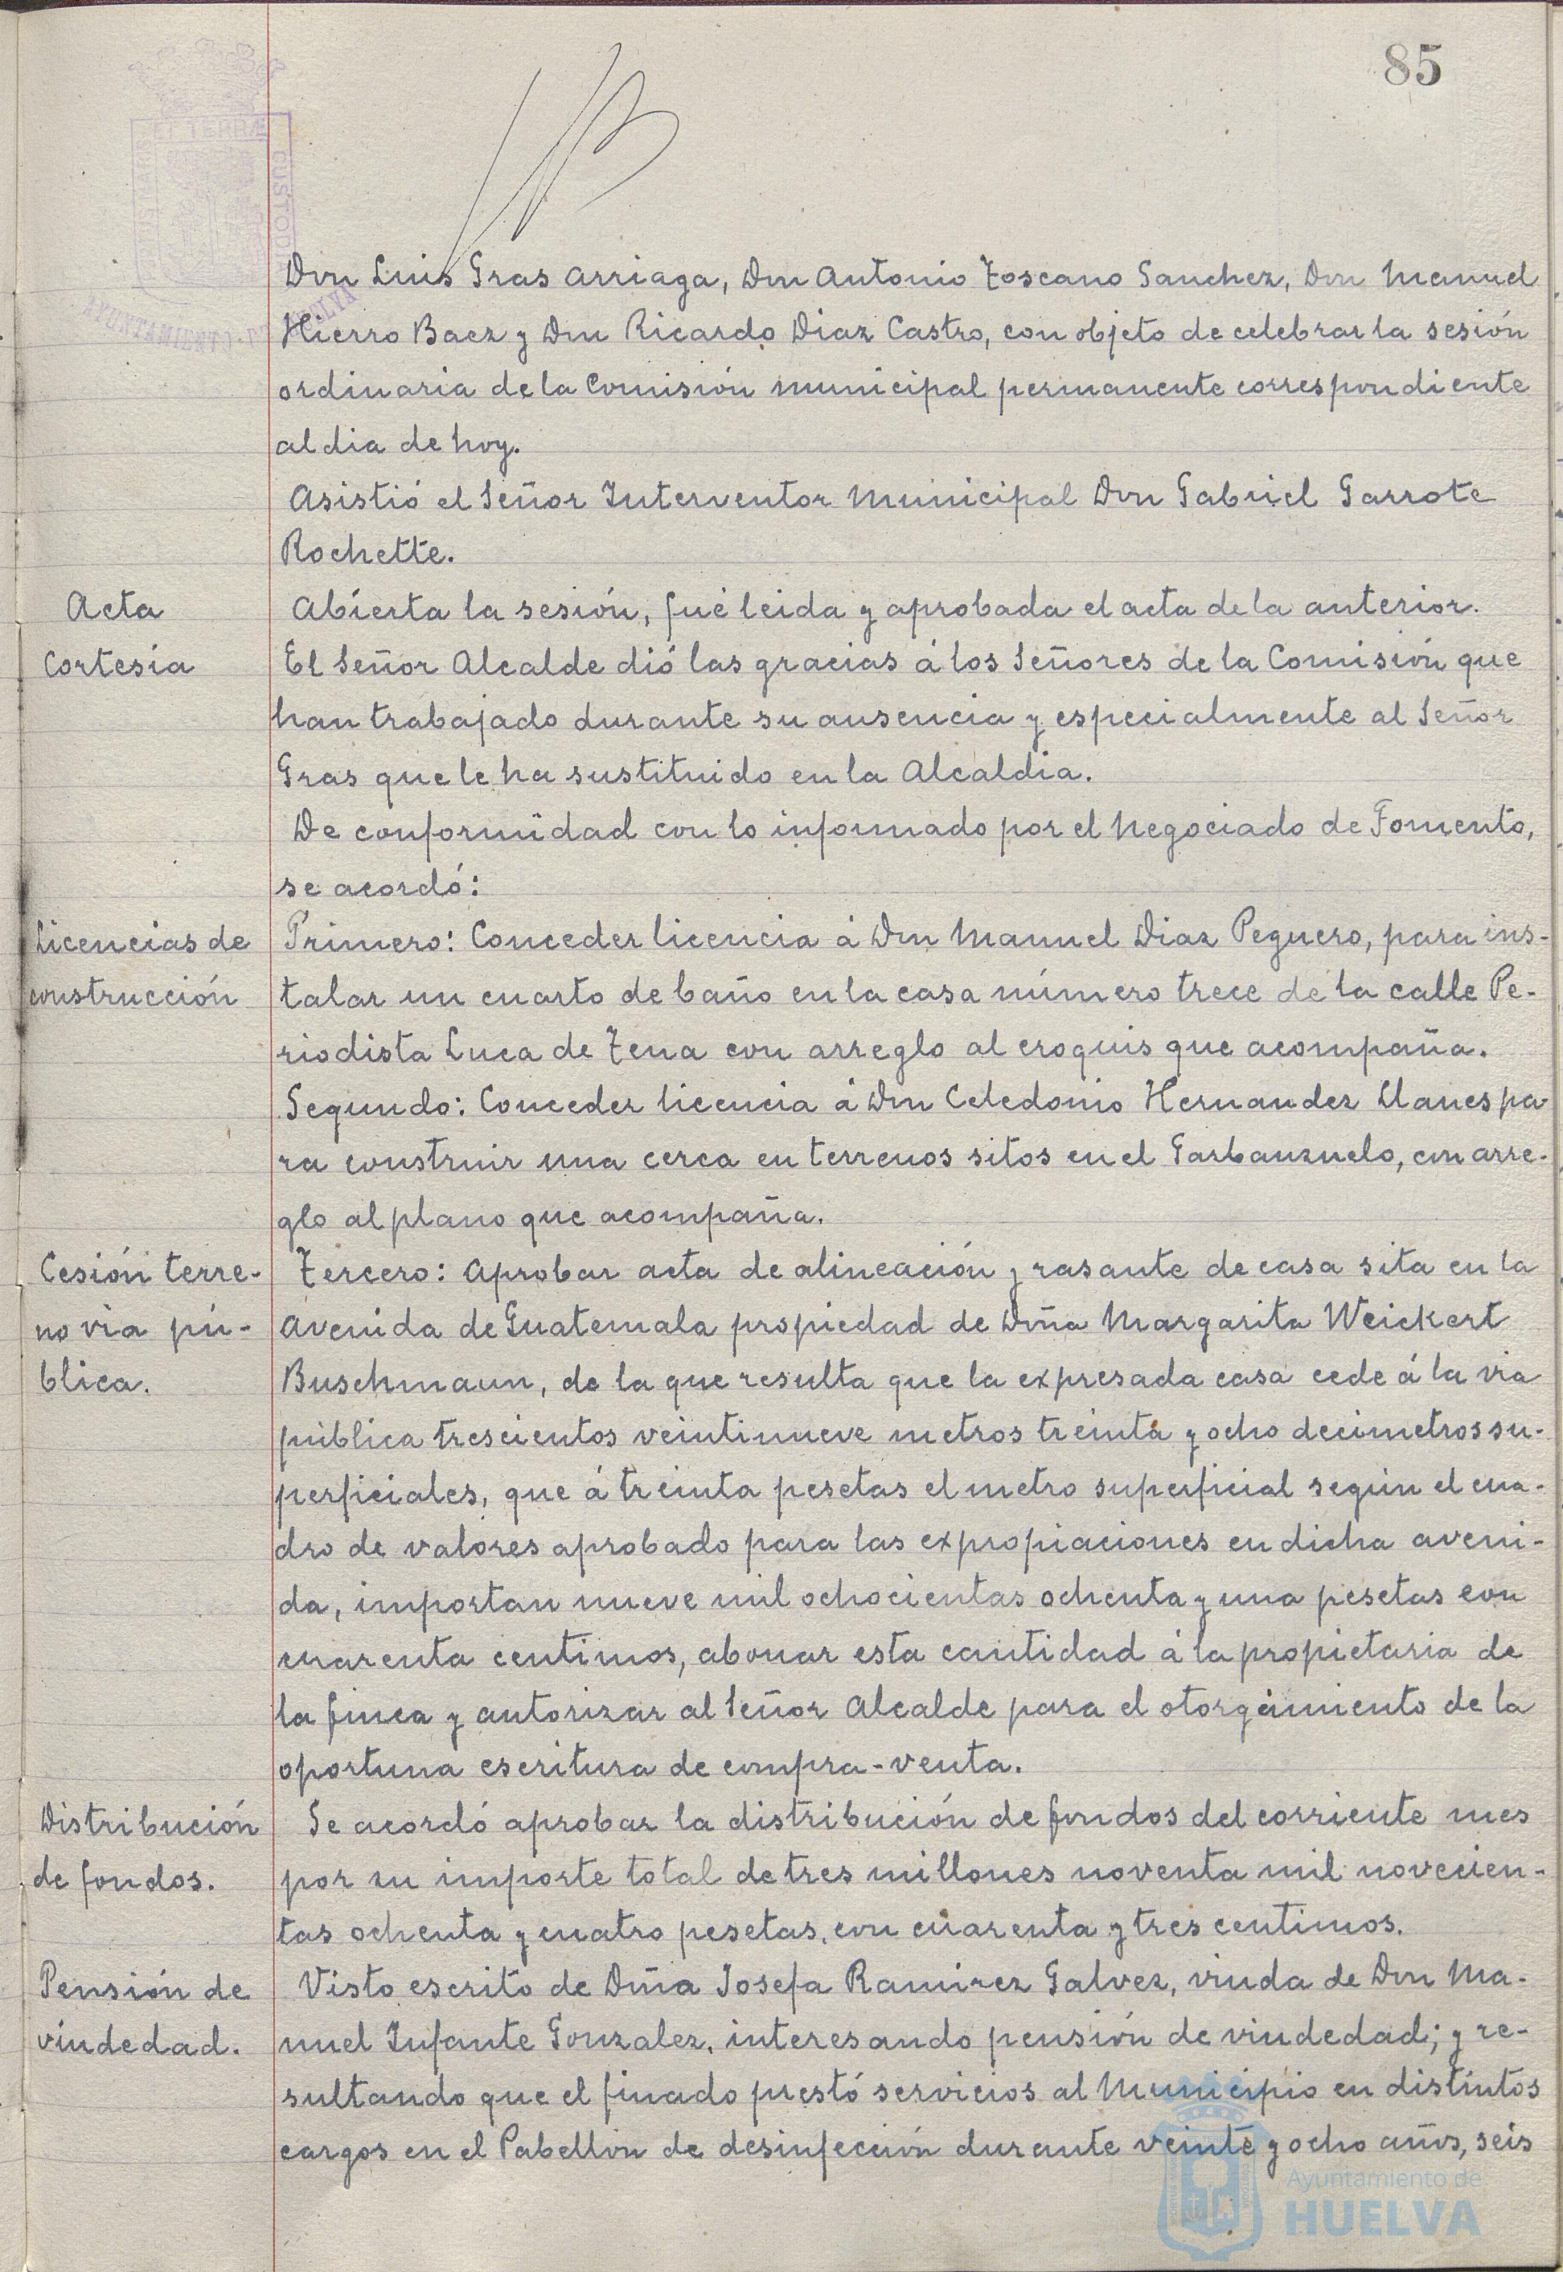 85
Don Luis Gras Arriaga, Don Antonio Toscano Sanchez, Don Manuel
Hierro Baez y Don Ricardo Diaz Castro, con objeto de celebrar la sesión
ordinaria de la Comisión municipal permanente correspondiente
al dia de hoy.
Asistió el Señor Interventor Municipal Don Gabriel Garrote
Rochette.
Acta
Abierta la sesión, fué leida y aprobada el acta de la anterior.
Cortesía
El Señor Alcalde dió las gracias á los Señores de la Comisión que
han trabajado durante su ausencia y especialmente al Señor
Gras que le ha sustituido en la Alcaldia.
De conformidad con lo informado por el Negociado de Fomento,
se acordó:
Licencias de
construcción
Primero: Conceder licencia á Don Manuel Diaz Peguero, para ins-
talar un cuarto de baño en la casa número trece de la calle Pe-
riodista Luca de Tena con arreglo al croquis que acompaña.
Segundo: Conceder licencia á Don Celedonio Hernandez Llanes pa-
ra construir una cerca en terrenos sitos en el Garbanzuelo, con arre-
glo al plano que acompaña.
Cesión terre-
no via pú-
blica.
Tercero: Aprobar acta de alineación y rasante de casa sita en la
Avenida de Guatemala propiedad de Doña Margarita Weickert
Buschmann, de la que resulta que la expresada casa cede á la via
pública trescientos veintinueve metros treinta y ocho decimetros su-
perficiales, que á treinta pesetas el metro superficial según el cua-
dro de valores aprobado para las expropiaciones en dicha aveni-
da, importan nueve mil ochocientas ochenta y una pesetas con
cuarenta centimos, abonar esta cantidad á la propietaria de
la finca y autorizar al Señor Alcalde para el otorgamiento de la
oportuna escritura de compra-venta.
Distribución
de fondos.
Se acordó aprobar la distribución de fondos del corriente mes
por su importe total de tres millones noventa mil novecien-
tas ochenta y cuatro pesetas, con cuarenta y tres centimos.
Pensión de
viudedad.
Visto escrito de Doña Josefa Ramirez Galvez, viuda de Don Ma-
nuel Infante Gonzalez, interesando pensión de viudedad; y re-
sultando que el finado prestó servicios al Municipio en distintos
cargos en el Pabellón de desinfección durante veinte y ocho años, seis
Ayuntamiento de
HUELVA